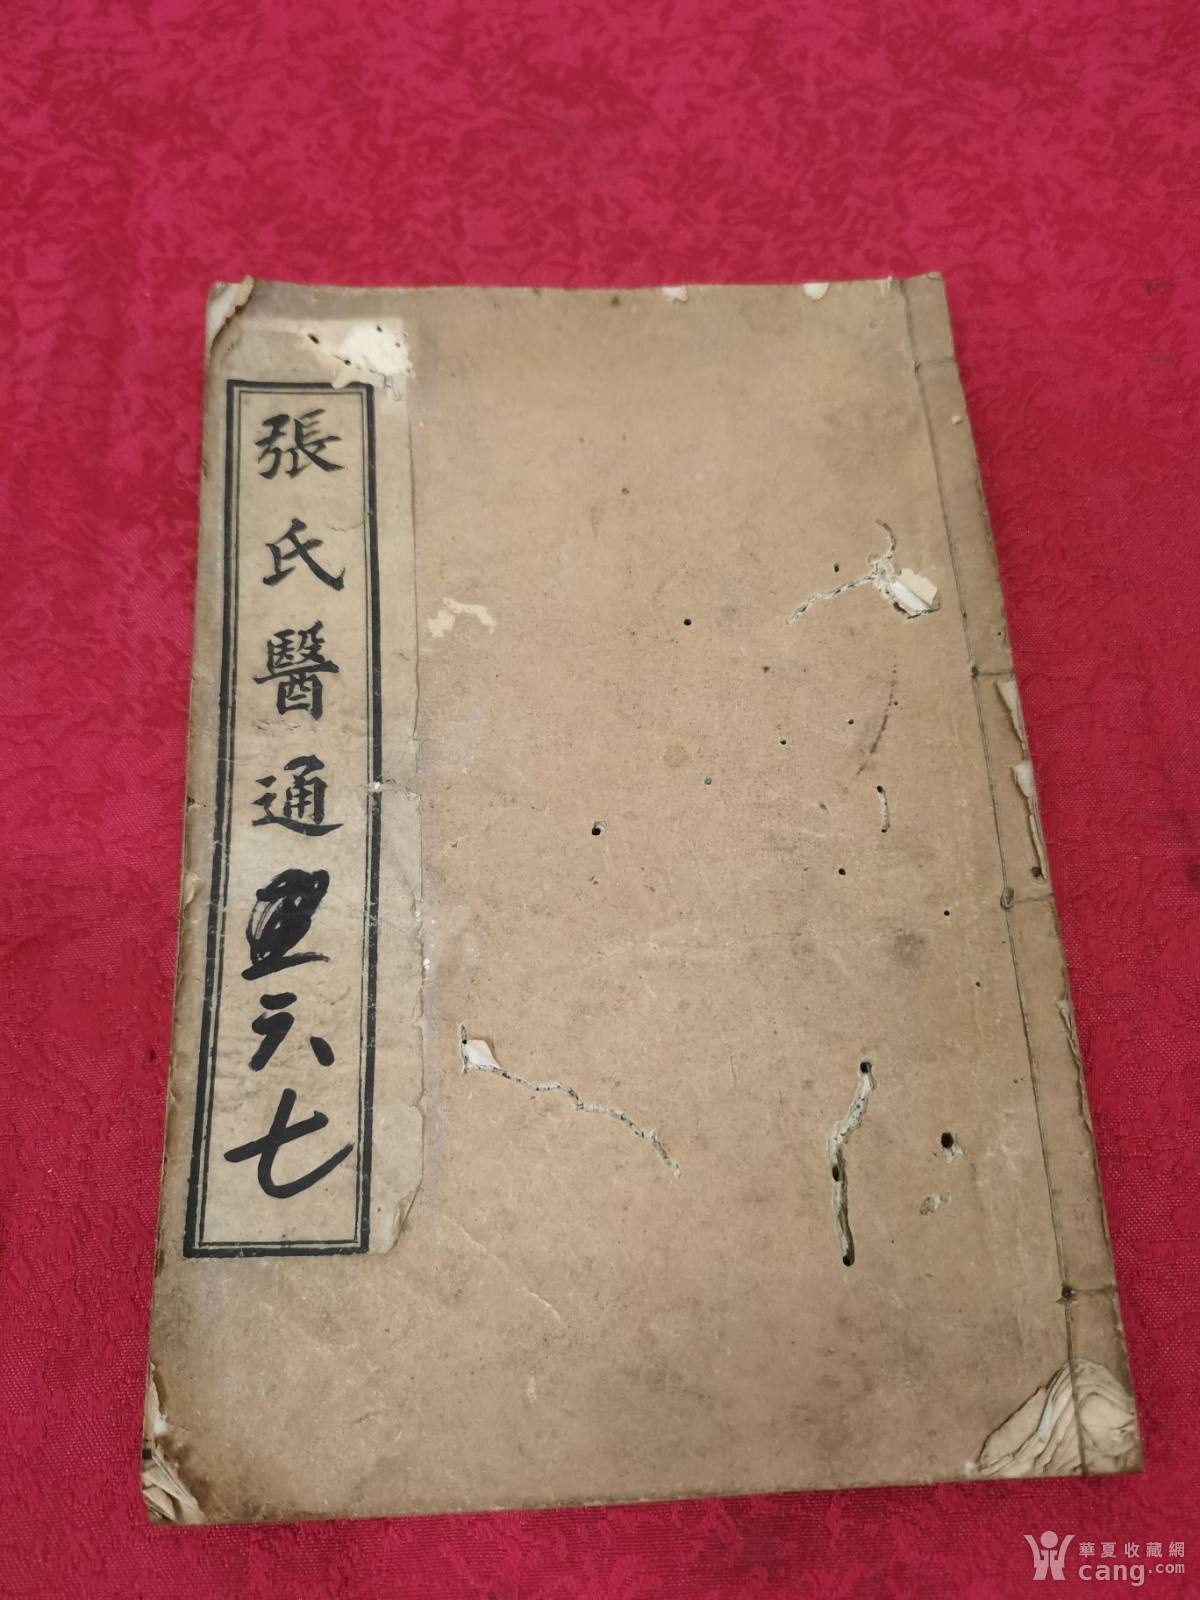 張氏醫通五六七
華夏收藏網
cang.com